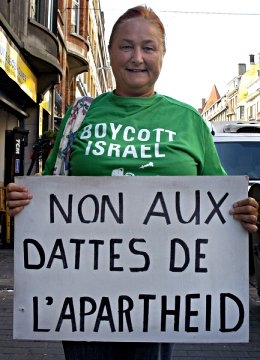 BOYCOTT
ISRAEL
NON AUX
DATTES DE
L'APARTHEID